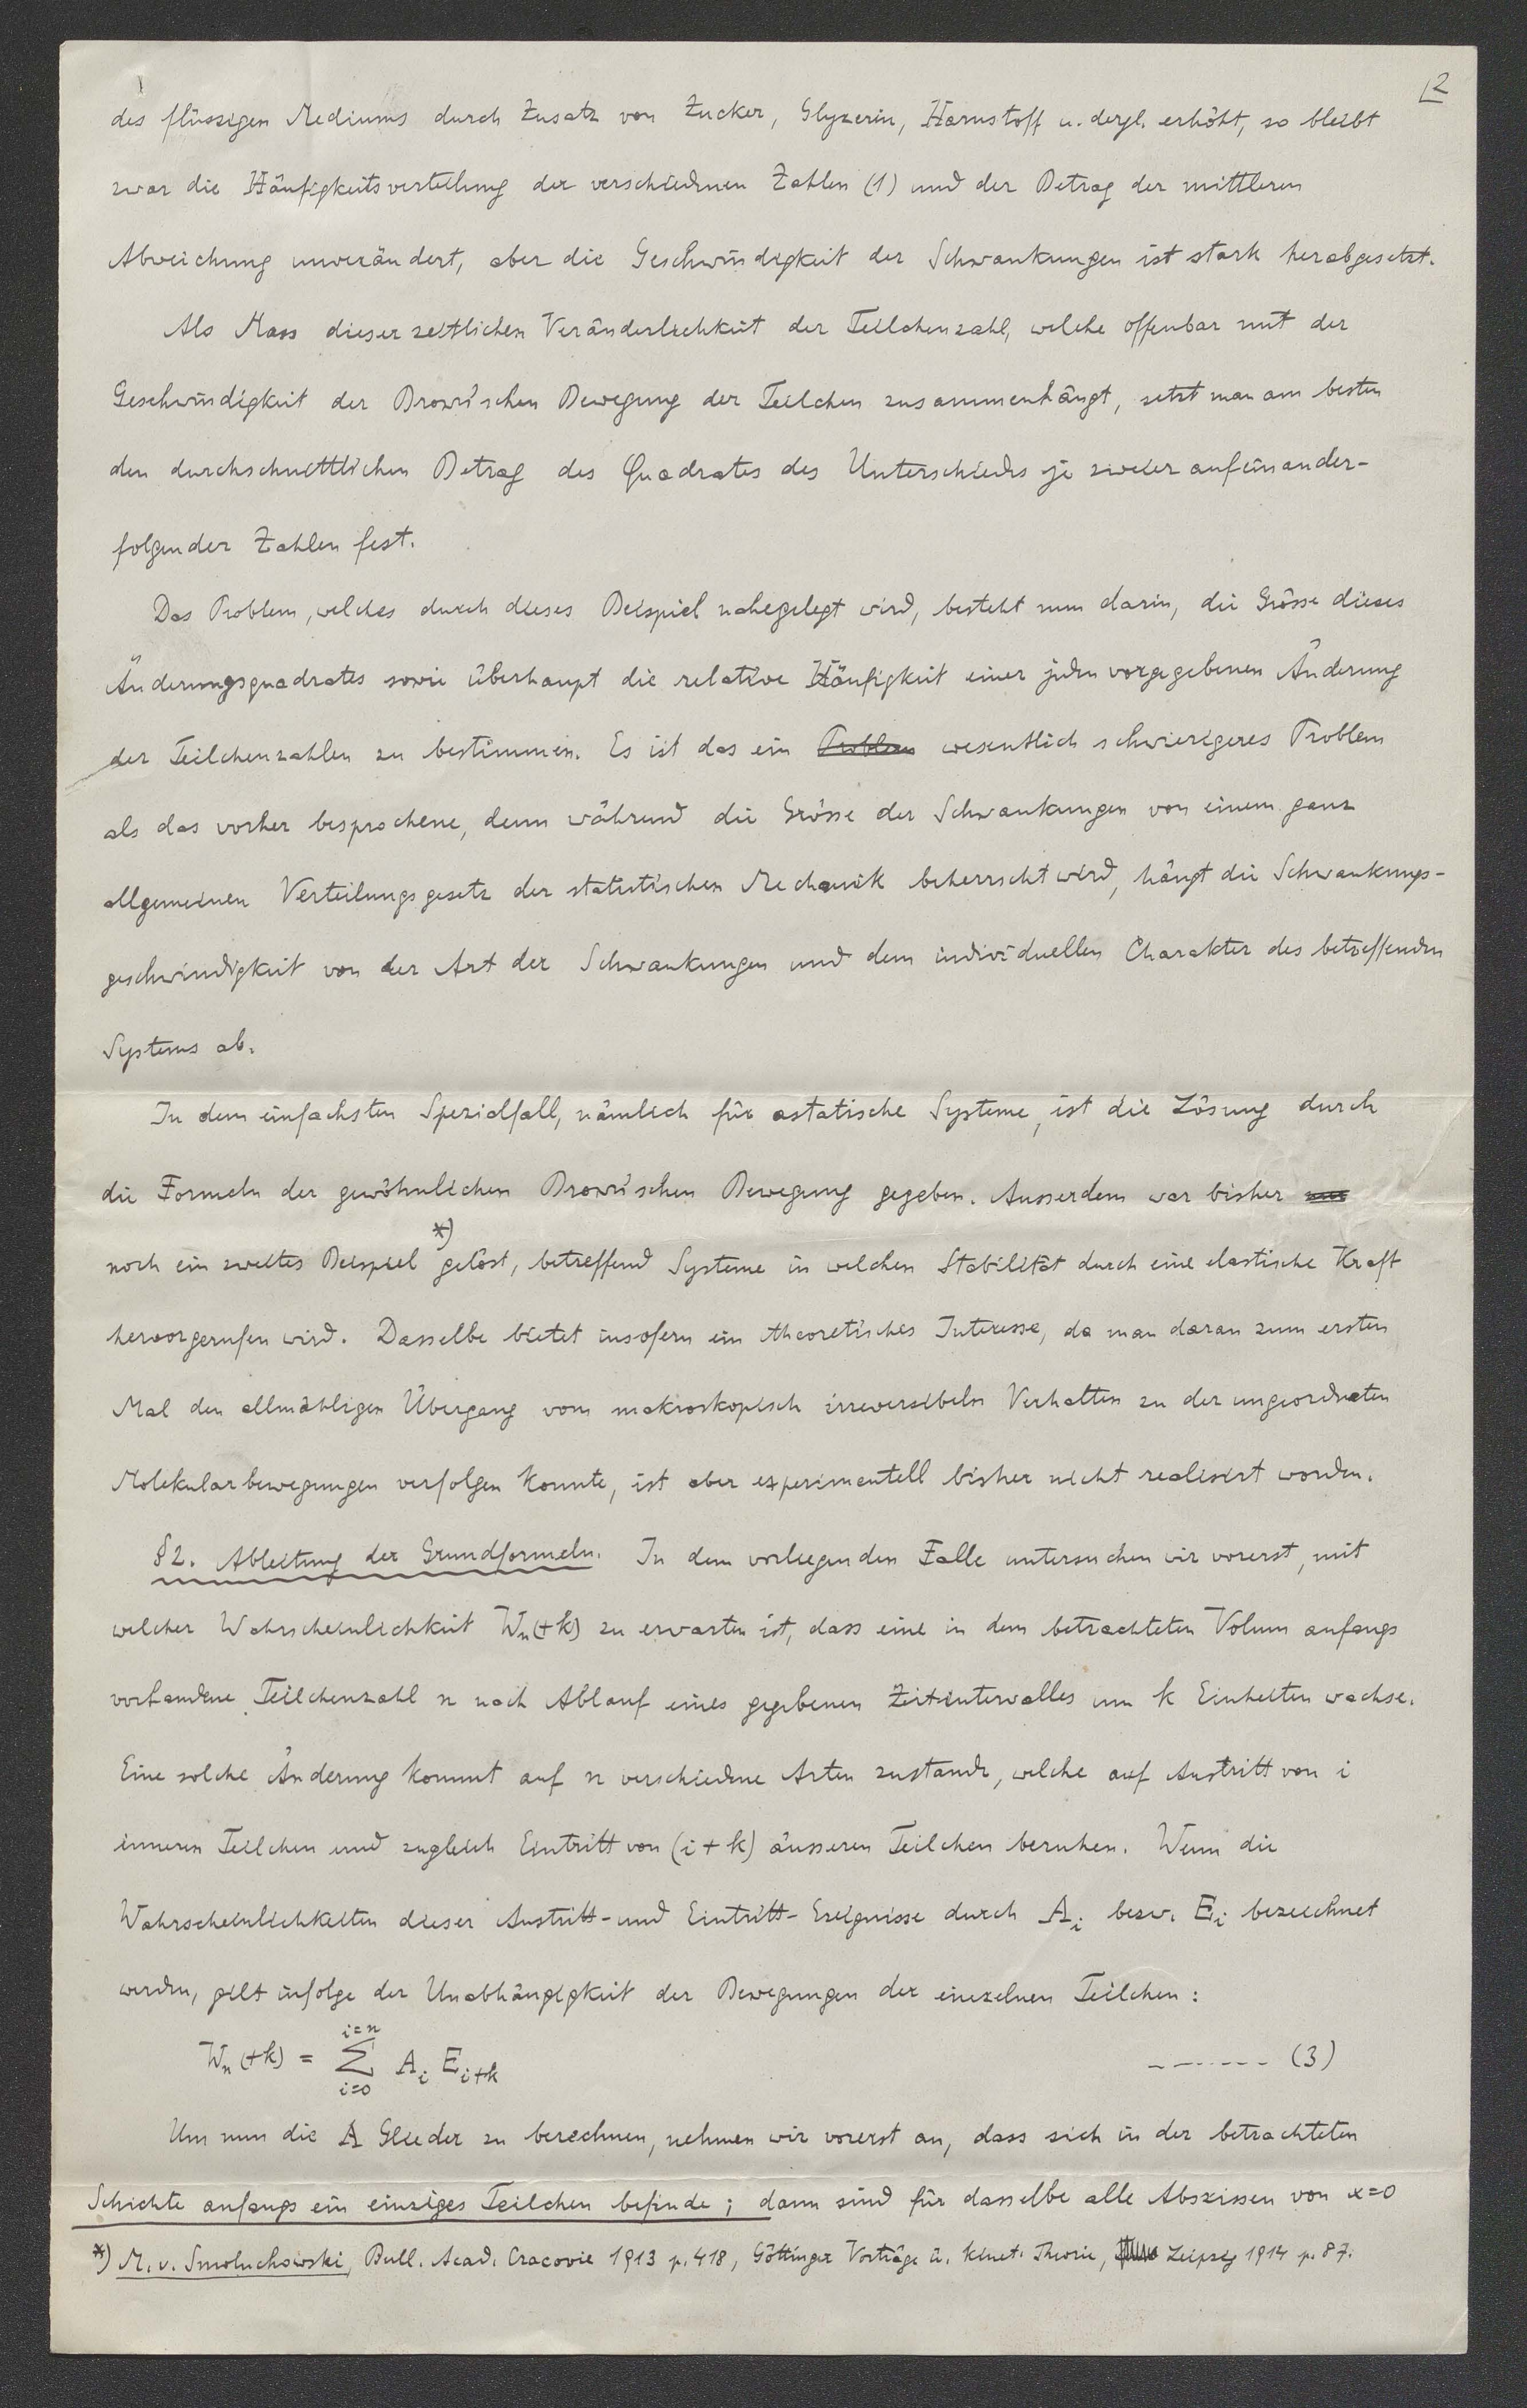 2
des flüssigen Mediums durch Zusatz von Zucker, Glyzerin, Harnstoff u. dergl. erhöht, so bleibt
zwar die Häufigkeitsverteilung der verschiednen Zahlen (1) und der Betrag der mittleren
Abweichung unverändert, aber die Geschwindigkeit der Schwankungen ist stark herabgesetzt.
Als Mass dieser zeitlichen Veränderlichkeit der Teilchenzahl, welche offenbar mit der
Geschwindigkeit der Brown'schen Bewegung der Teilchen zusammenhängt, setzt man am besten
den durchschnittlichen Betrag des Quadrates des Unterschieds je zweier aufeinander-
folgender Zahlen fest.
Das Problem, welches durch dieses Beispiel nahegelegt wird, besteht nun darin, die Grösse dieses
Änderungsquadrates sowie überhaupt die relative Häufigkeit einer jeden vorgegebenen Änderung
der Teilchenzahlen zu bestimmen. Es ist das ein Problem wesentlich schwierigeres Problem
als das vorher besprochene, denn während die Grösse der Schwankungen von einem ganz
allgemeinen Verteilungsgesetz der statistischen Mechanik beherrscht wird, hängt die Schwankungs-
geschwindigkeit von der Art der Schwankungen und dem individuellen Charakter des betreffenden
Systems ab.
In dem einfachsten Spezialfall, nämlich für astatische Systeme, ist die Lösung durch
die Formeln der gewöhnlichen Brown'schen Bewegung gegeben. Ausserdem war bisher nur
noch ein zweites Beispiel *) gelöst, betreffend Systeme in welchen Stabilität durch eine elastische Kraft
hervorgerufen wird. Dasselbe bietet insofern ein theoretisches Interesse, da man daran zum ersten
Mal den allmähligen Übergang vom makroskopisch irreversibeln Verhalten zu der ungeordneten
Molekularbewegungen verfolgen konnte, ist aber experimentell bisher nicht realisirt worden.
§2. Ableitung der Grundformeln. In dem vorliegenden Falle untersuchen wir vorerst, mit
welcher Wahrscheinlichkeit Wn(+k) zu erwarten ist, dass eine in dem betrachteten Volum anfangs
vorhandene Teilchenzahl n nach Ablauf eines gegebenen Zeitintervalles um k Einheiten wachse.
Eine solche Änderung kommt auf n verschiedne Arten zustande, welche auf Austritt von i
inneren Teilchen und zugleich Eintritt von (i+k) äusseren Teilchen beruhen. Wenn die
Wahrscheinlichkeiten dieser Austritt- und Eintritt-Ereignisse durch Ai bezw. Ei bezeichnet
werden, gilt infolge der Unabhängigkeit der Bewegungen der einzelnen Teilchen:
Wn(+k) = Σ_{i=0}^{i=n} A_i E_{i+k} ------- (3)
Um nun die A Glieder zu berechnen, nehmen wir vorerst an, dass sich in der betrachteten
Schichte anfangs ein einziges Teilchen befinde; dann sind für dasselbe alle Abszissen von x=0
*) M. v. Smoluchowski, Bull. Acad. Cracovie 1913 p. 418, Göttinger Vorträge ü. kinet. Theorie, Leipzig 1914 p. 87.